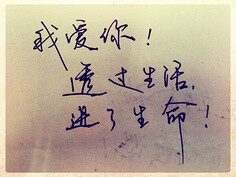 我爱你！
透过生活，
进了生命！